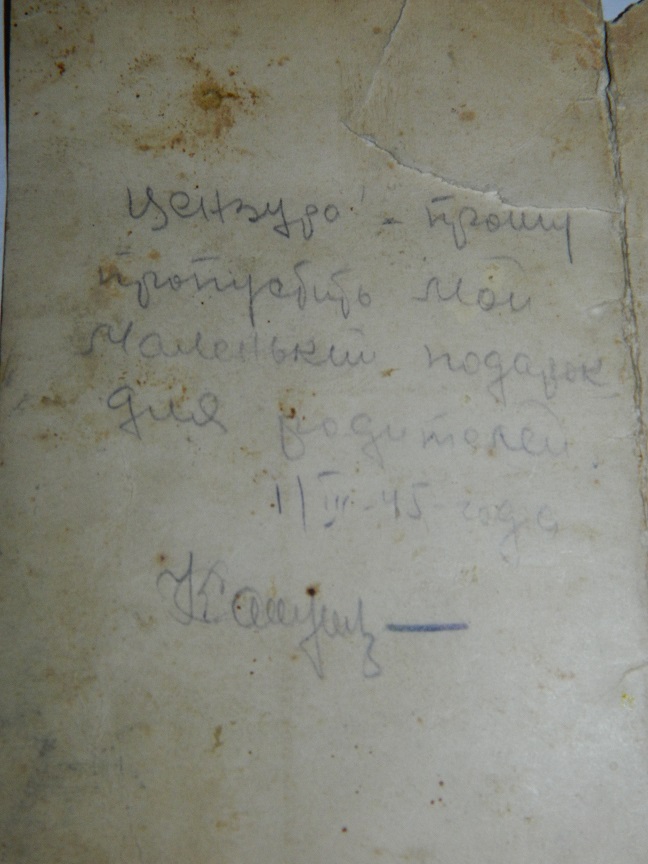 Цензура! - прошу
пропустить мой
маленький подарок
для родителей.
1/III-45 года